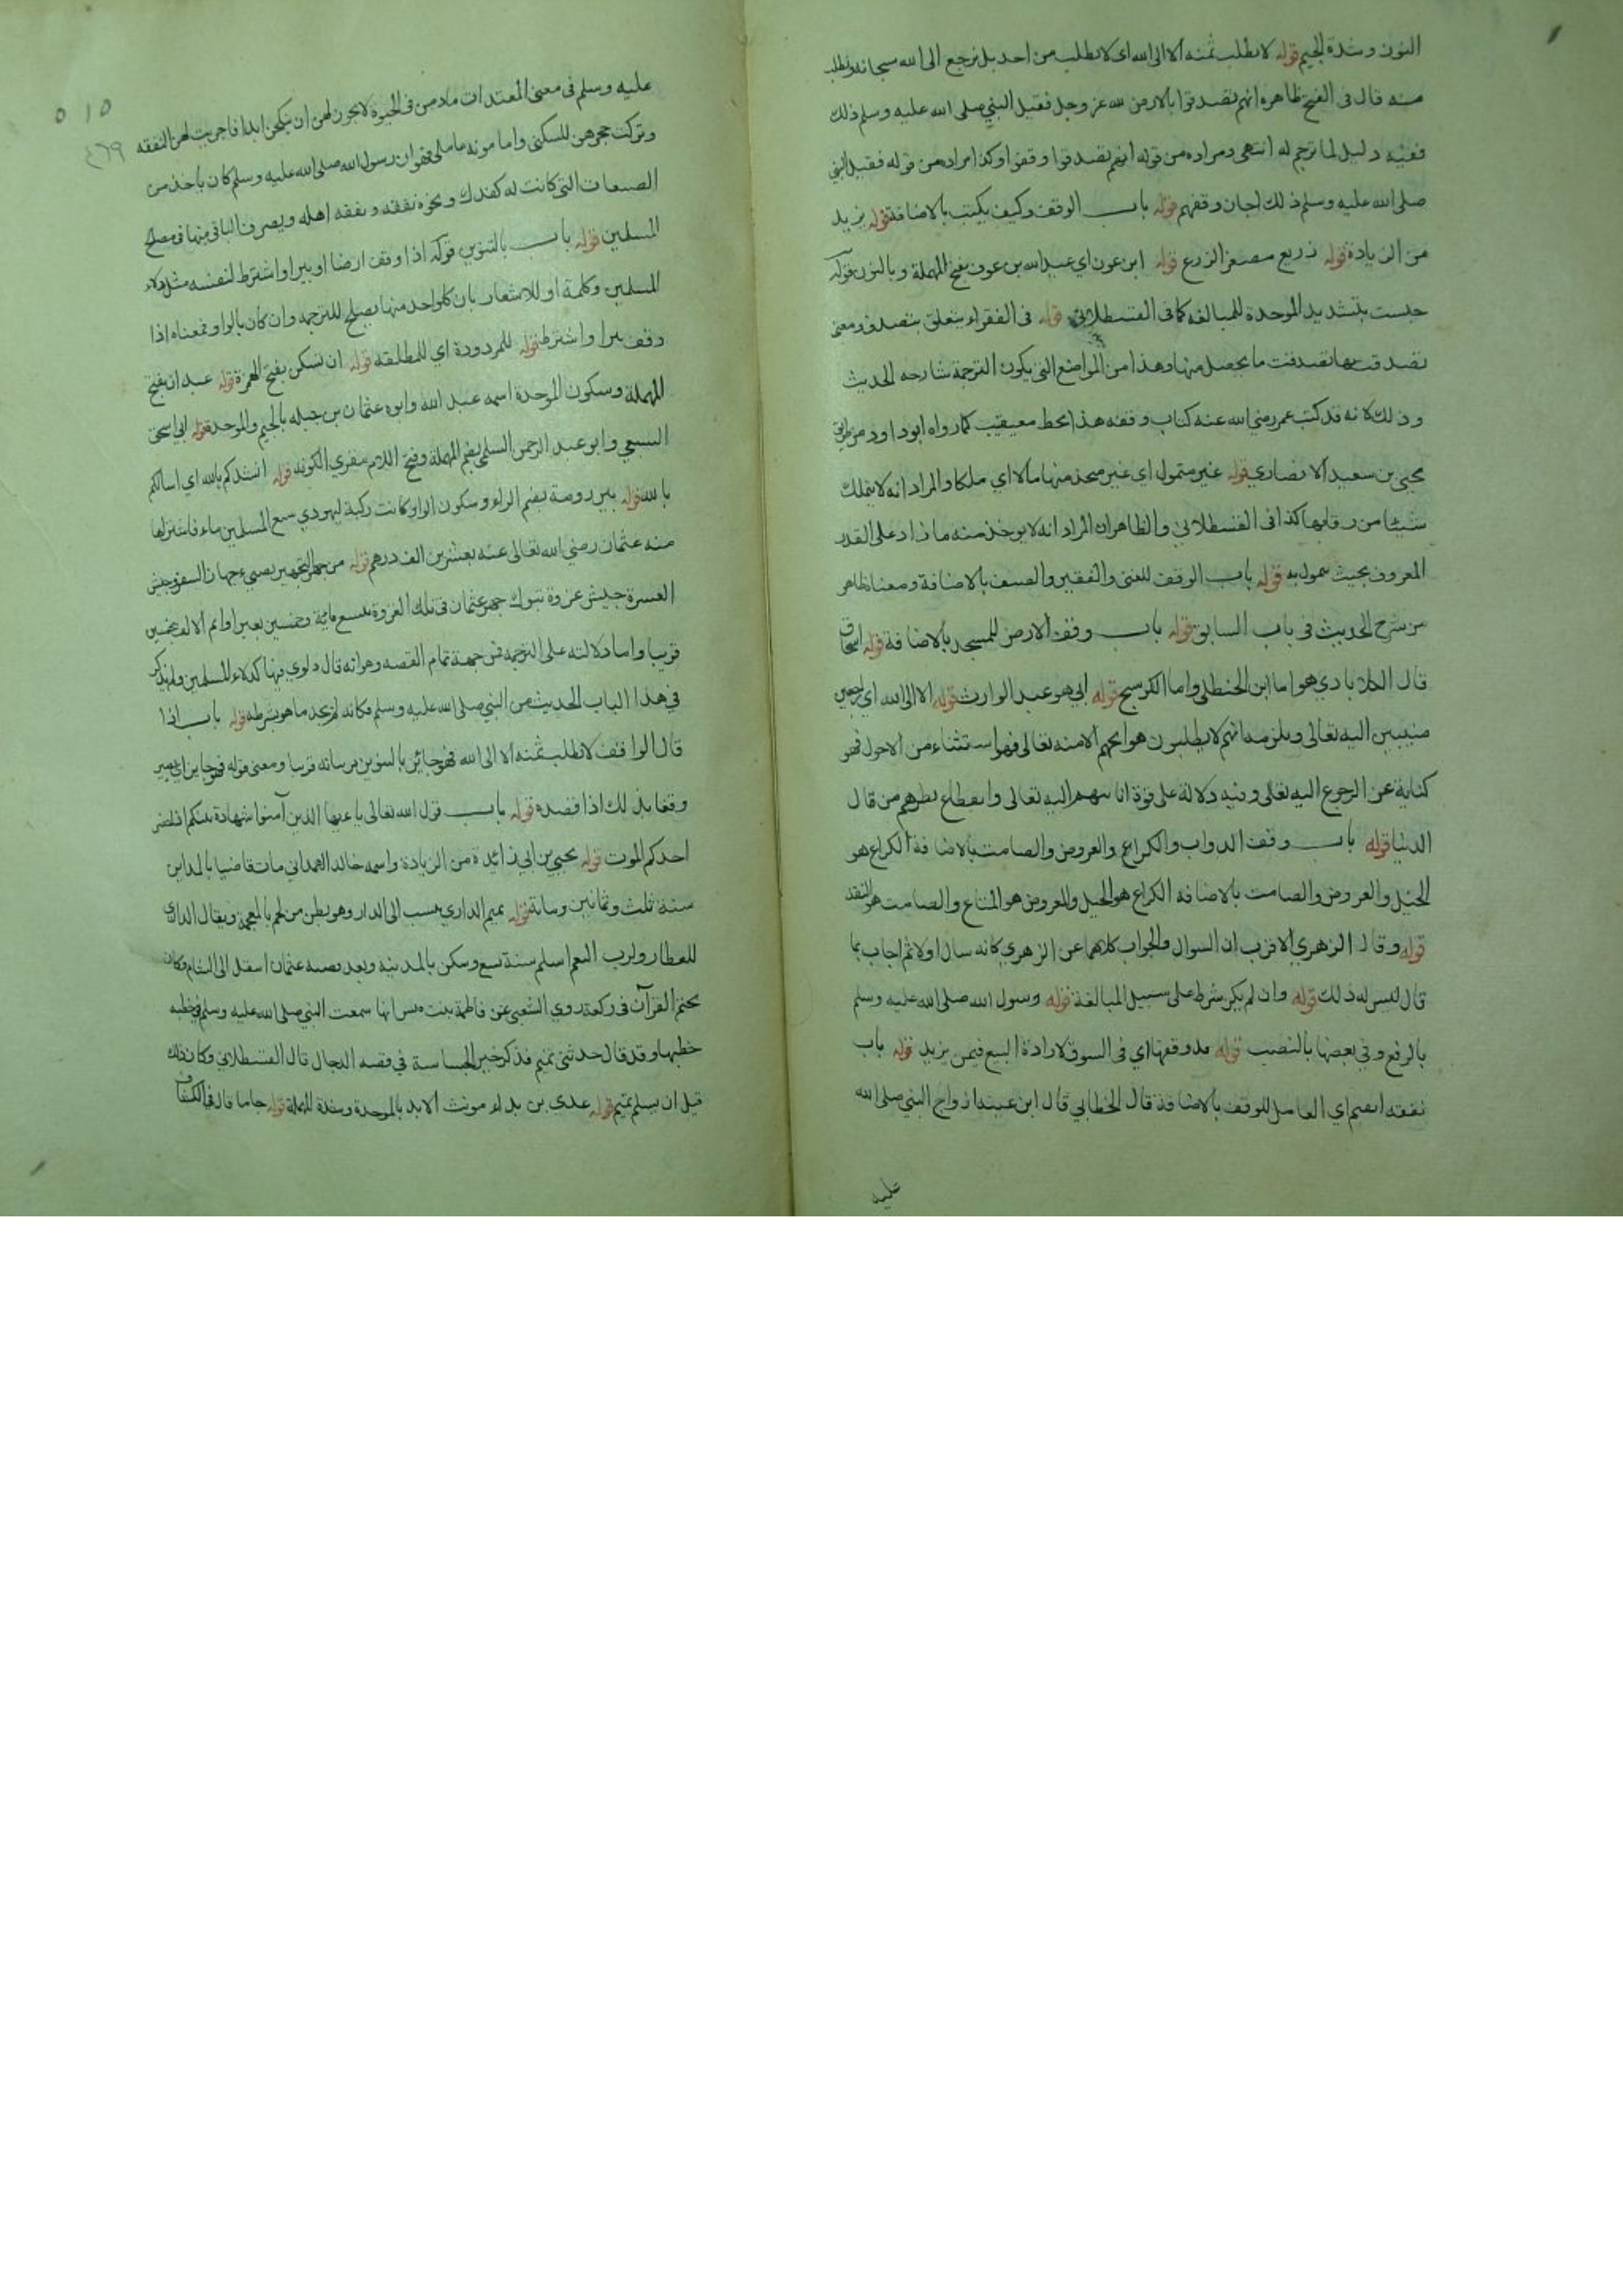 النون وشدة الجيم قوله لا نطلب ثمنه الا الى الله اى لا نطلب من احد بل نرجع الى الله سبحانه ونطلب
منه قال فى الفتح ظاهره انهم تصدقوا بالارض لله عز وجل فقبل النبي صلى الله عليه وسلم ذلك
ففيه دليل لما ترجم له انتهى ومراده من قوله انهم تصدقوا وقفوا وكذا مراده من قوله فقبل النبي
صلى الله عليه وسلم ذلك اجاز وقفهم قوله باب الوقف وكيف يكتب بالاضافة قوله يزيد
من الزيادة قوله زريع مصغر الزرع قوله ابن عون اي عبد الله بن عون بفتح المهملة وبالنون قوله
حبست بتشديد الموحدة للمبالغة كما فى القسطلانى قوله فى الفقراء متعلق بتصدق ومعنى
تصدقت بها تصدقت ما يحصل منها وهذا من المواضع التى يكون الترجمة شارحه للحديث
وذلك لانه قد كتب عمر رضي الله عنه كتاب وقفه هذا بخط معيقيب كما رواه ابو داود من طريق
يحيى بن سعيد الانصاري قوله غير متمول اي غير متخذ منها مالا اي ملكا والمراد انه لا يتملك
شيئا من رقابها كذا فى القسطلاني والظاهر ان المراد انه لا يوخذ منه ما زاد على القدر
المعروف بحيث يتمول به قوله باب الوقف للغنى والفقير والضيف بالاضافة ومعناه ظاهر
من شرح الحديث فى باب السابق قوله باب وقف الارض للمسجد بالاضافة قوله اسحاق
قال الكلاباذي هو اما ابن الحنظلى واما الكوسج قوله ابي هو عبد الوارث قوله الا الى الله اي راجعين
منيبين اليه تعالى ويلزمه انهم لا يطلبون هوايجهم الا منه تعالى فهو استثناء من الاحول فهو
كناية عن الرجوع اليه تعالى وفيه دلالة على قوة انابتهم اليه تعالى وانقطاع نظرهم من قال
الدنيا قوله باب وقف الدواب والكراع والعروض والصامت بالاضافة الكراع هو
الخيل والعروض والصامت بالاضافه الكراع هو الخيل والعروض هو المتاع والصامت هو النقد
قوله وقال الزهري الاقرب ان السوال والجواب كلاهما عن الزهري كانه سال اولا ثم اجاب بما
قال ليس له ذلك قوله وان لم يكن شرط على سبيل المبالغة قوله رسول الله صلى الله عليه وسلم
بالرفع وفى بعضها بالنصب قوله قد وقفها اي فى السوق لارادة البيع فيمن يزيد قوله باب
نفقه القيم اي العامل للوقف بالاضافة قال الخطابي قال ابن عيينه ازواج النبي صلى الله
عليه
٥١٥
٤٦٩
عليه وسلم فى معنى المعتدات مادمن فى الحيوة لا يجوز لهن ان ينكحن ابدا فاجريت لهن النفقه
وتركت حجرهن للسكنى واما مونه عاملى فهو ان رسول الله صلى الله عليه وسلم كان ياخذ من
الصفعات التى كانت له كفدك ونحوه نفقته ونفقة اهله ويصرف الباقى منها فى مصالح
المسلمين قوله باب بالتنوين قوله اذا وقف ارضا او بيرا واشترط لنفسه مثل دلاء
المسلمين وكلمة او للاشعار بان كل واحد منها يصلح للترجمه وان كان بالواو فمعناه اذا
وقف بيرا واشترط قوله للمردودة اي للمطلقه قوله ان تسكن بفتح الهمزة قوله عبدان بفتح
المهملة وسكون الموحدة اسمه عبد الله وابوه عثمان بن جبله بالجيم والموحدة قوله ابي اسحق
السبيعي وابو عبد الرحمن السلمى بضم المهملة وفتح اللام مقري الكوفه قوله انشدكم بالله اي اسالكم
بالله قوله بير رومة بضم الراء وسكون الواو كانت ركية ليهودي يبيع المسلمين ماءه فاشتراها
منه عثمان رضي الله تعالى عنه بعشرين الف درهم قوله من جهز التجهيز تهيىء جهاز السفر وجيش
العسرة جيش غزوة تبوك جهز عثمان فى تلك الغزوة تسع ماية وخمسين بعيرا واتم الالف بخمسين
فرسا واما دلالته على الترجمه فمن جهة تمام القصه وهو انه قال دلوي فيها كدلاء المسلمين ولم يذكر
في هذا الباب الحديث من النبي صلى الله عليه وسلم فكانه لم يجد ما هو بشرطه قوله باب اذا
قال الواقف لا نطلب ثمنه الا الى الله فهو جائز بالتنوين مر بيانه قريبا ومعنى قوله فهو جايز اي يصير
وقفا بذلك اذا قصده قوله باب قول الله تعالى يا ءيها الذين آمنوا شهادة بينكم اذا حضر
احدكم الموت قوله يحيى بن ابي زائدة من الزيادة واسمه خالد الهمداني مات قاضيا بالمداين
سنة ثلث وثمانين ومائة قوله تميم الداري ينسب الى الدار وهو بطن من لخم بالمعجمه ويقال الداري
للعطار ولرب النعم اسلم سنة تسع وسكن بالمدينه وبعد قصة عثمان انتقل الى الشام وكان
يختم القرآن فى ركعة روي الشعبى عن فاطمة بنت قيس انها سمعت النبي صلى الله عليه وسلم في خطبه
خطبها وقد قال حدثني تميم فذكر خبر الجساسة في قصه الدجال قال القسطلاني وكان ذلك
قبل ان يسلم تميم قوله عدي بن بداء مونث الابد بالموحدة وشدة المهملة قوله جاما قال فى الكشاف